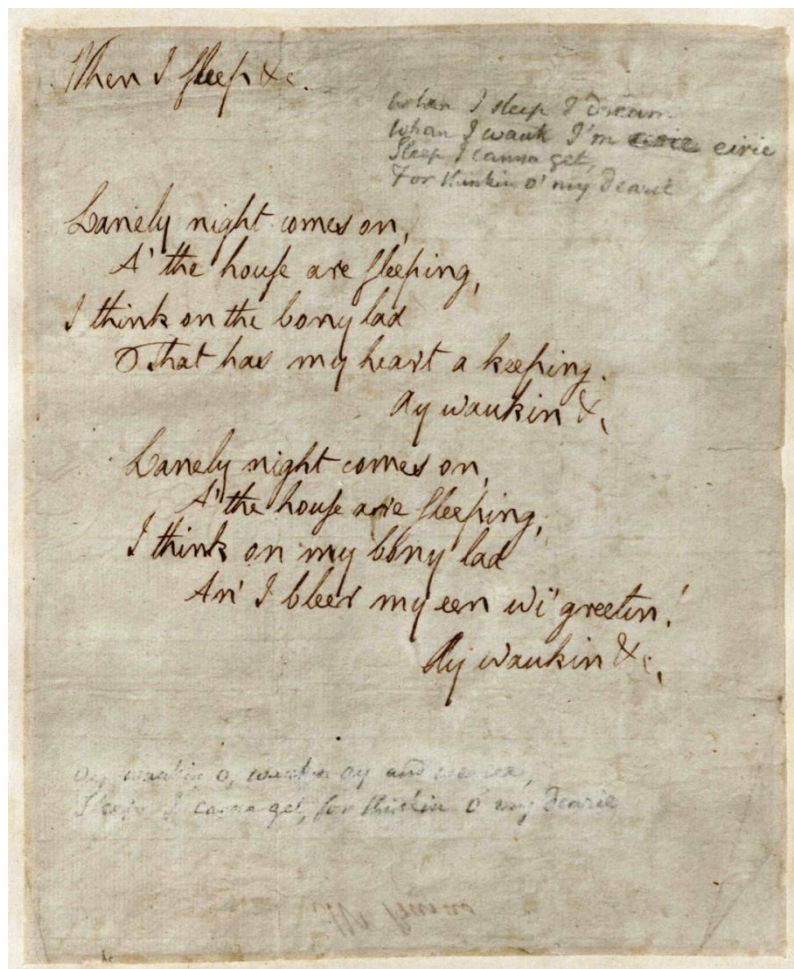 When I sleep &c.
When I sleep I dream
Whan I wauk I'm eirie
Sleep I canna get,
For thinkin o' my Dearie
Lanely night comes on,
A' the house are sleeping,
I think on the bony lad
That has my heart a keeping.
Ay waukin &c
Lanely night comes on,
A' the house are sleeping,
I think on my bony lad
An' I bleer my een wi' greetin!
Ay waukin &c,
Ay waukin o, waukin ay and
Sleep I canna get, for thinkin o' my Dearie